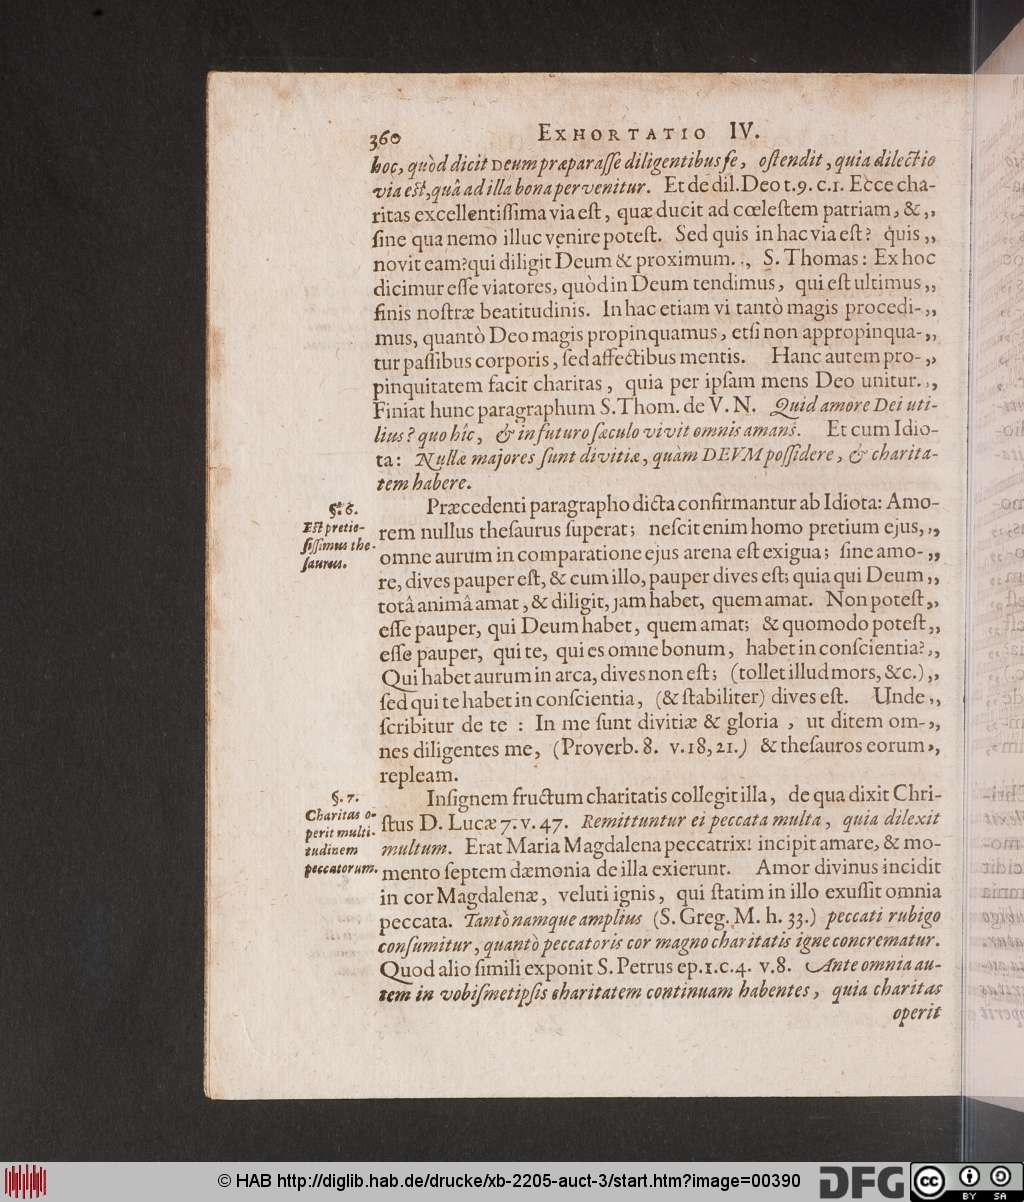 360 EXHORTATIO IV.
hoc, quòd dicit DEum præparaſſe diligentibus ſe, oſtendit, quia dilectio
via eſt, quâ ad illa bona pervenitur. Et de dil. Deo t. 9. c. 1. Ecce cha-
ritas excellentiſſima via eſt, quæ ducit ad cœleſtem patriam, &,,
ſine qua nemo illuc venire poteſt. Sed quis in hac via eſt? quis,,
novit eam? qui diligit Deum & proximum.,, S. Thomas: Ex hoc
dicimur eſſe viatores, quòd in Deum tendimus, qui eſt ultimus,,
finis noſtræ beatitudinis. In hac etiam vi tantò magis procedi-,,
mus, quantò Deo magis propinquamus, etſi non appropinqua-,,
tur paſſibus corporis, ſed affectibus mentis. Hanc autem pro-,,
pinquitatem facit charitas, quia per ipſam mens Deo unitur.,,
Finiat hunc paragraphum S. Thom. de V. N. Quid amore Dei uti-
lius? quo hîc, & in futuro ſæculo vivit omnis amans. Et cum Idio-
ta: Nullæ majores ſunt divitiæ, quàm DEVM poſſidere, & charita-
tem habere.
§. 6.
Eſt pretio-
ſiſſimus the-
ſaurus.
Præcedenti paragrapho dicta confirmantur ab Idiota: Amo-
rem nullus theſaurus ſuperat; neſcit enim homo pretium ejus,,,
omne aurum in comparatione ejus arena eſt exigua; ſine amo-,,
re, dives pauper eſt, & cum illo, pauper dives eſt; quia qui Deum,,
totâ animâ amat, & diligit, jam habet, quem amat. Non poteſt,,
eſſe pauper, qui Deum habet, quem amat; & quomodo poteſt,,
eſſe pauper, qui te, qui es omne bonum, habet in conſcientia?,,
Qui habet aurum in arca, dives non eſt; (tollet illud mors, &c.),,
ſed qui te habet in conſcientia, (& ſtabiliter) dives eſt. Unde,,
ſcribitur de te : In me ſunt divitiæ & gloria, ut ditem om-,,
nes diligentes me, (Proverb. 8. v. 18, 21.) & theſauros eorum,,
repleam.
§. 7.
Charitas o-
perit multi-
tudinem
peccatorum.
Inſignem fructum charitatis collegit illa, de qua dixit Chri-
ſtus D. Lucæ 7. v. 47. Remittuntur ei peccata multa, quia dilexit
multum. Erat Maria Magdalena peccatrix: incipit amare, & mo-
mento ſeptem dæmonia de illa exierunt. Amor divinus incidit
in cor Magdalenæ, veluti ignis, qui ſtatim in illo exuſſit omnia
peccata. Tantò namque amplius (S. Greg. M. h. 33.) peccati rubigo
conſumitur, quantò peccatoris cor magno charitatis igne concrematur.
Quod alio ſimili exponit S. Petrus ep. 1. c. 4. v. 8. Ante omnia au-
tem in vobiſmetipſis charitatem continuam habentes, quia charitas
operit
© HAB http://diglib.hab.de/drucke/xb-2205-auct-3/start.htm?image=00390
DFG
cc
BY SA